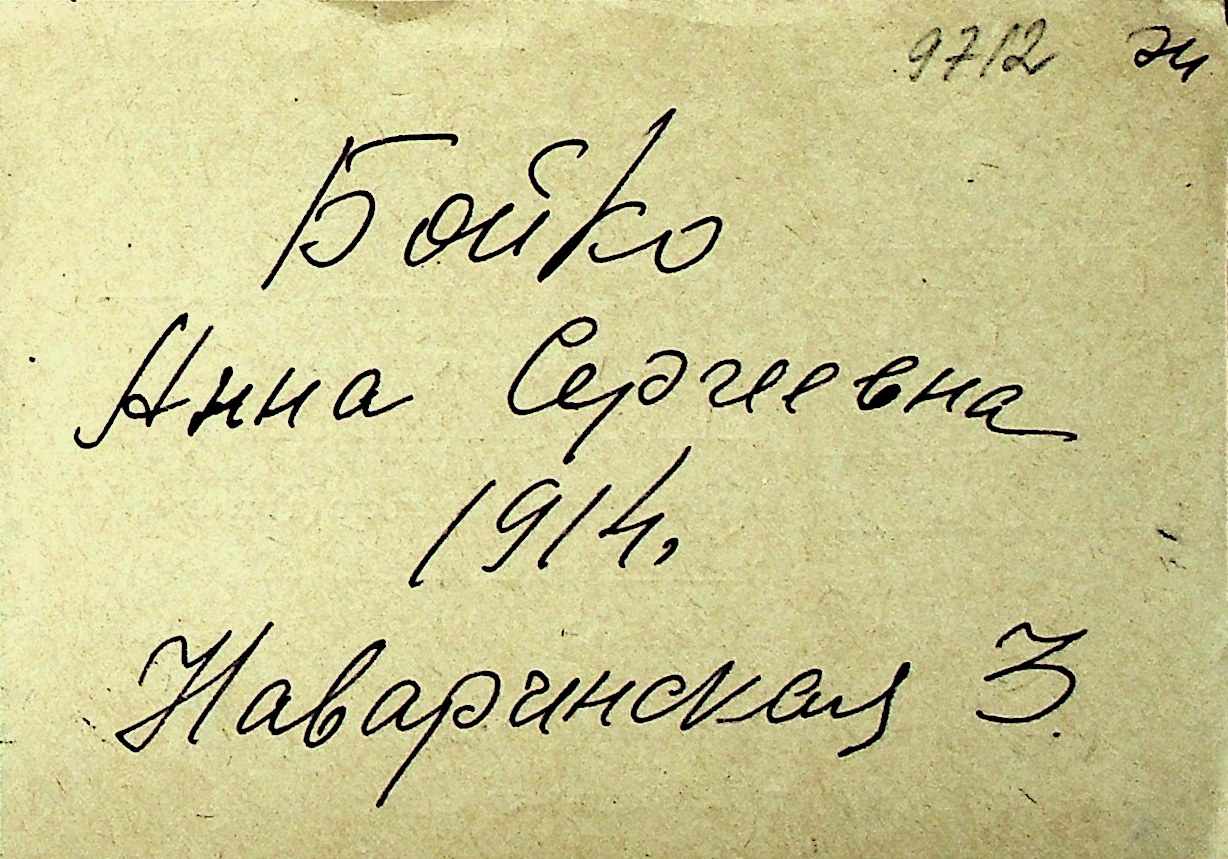 9712
Бойко
Анна Сергеевна
1914,
Наваринская 3